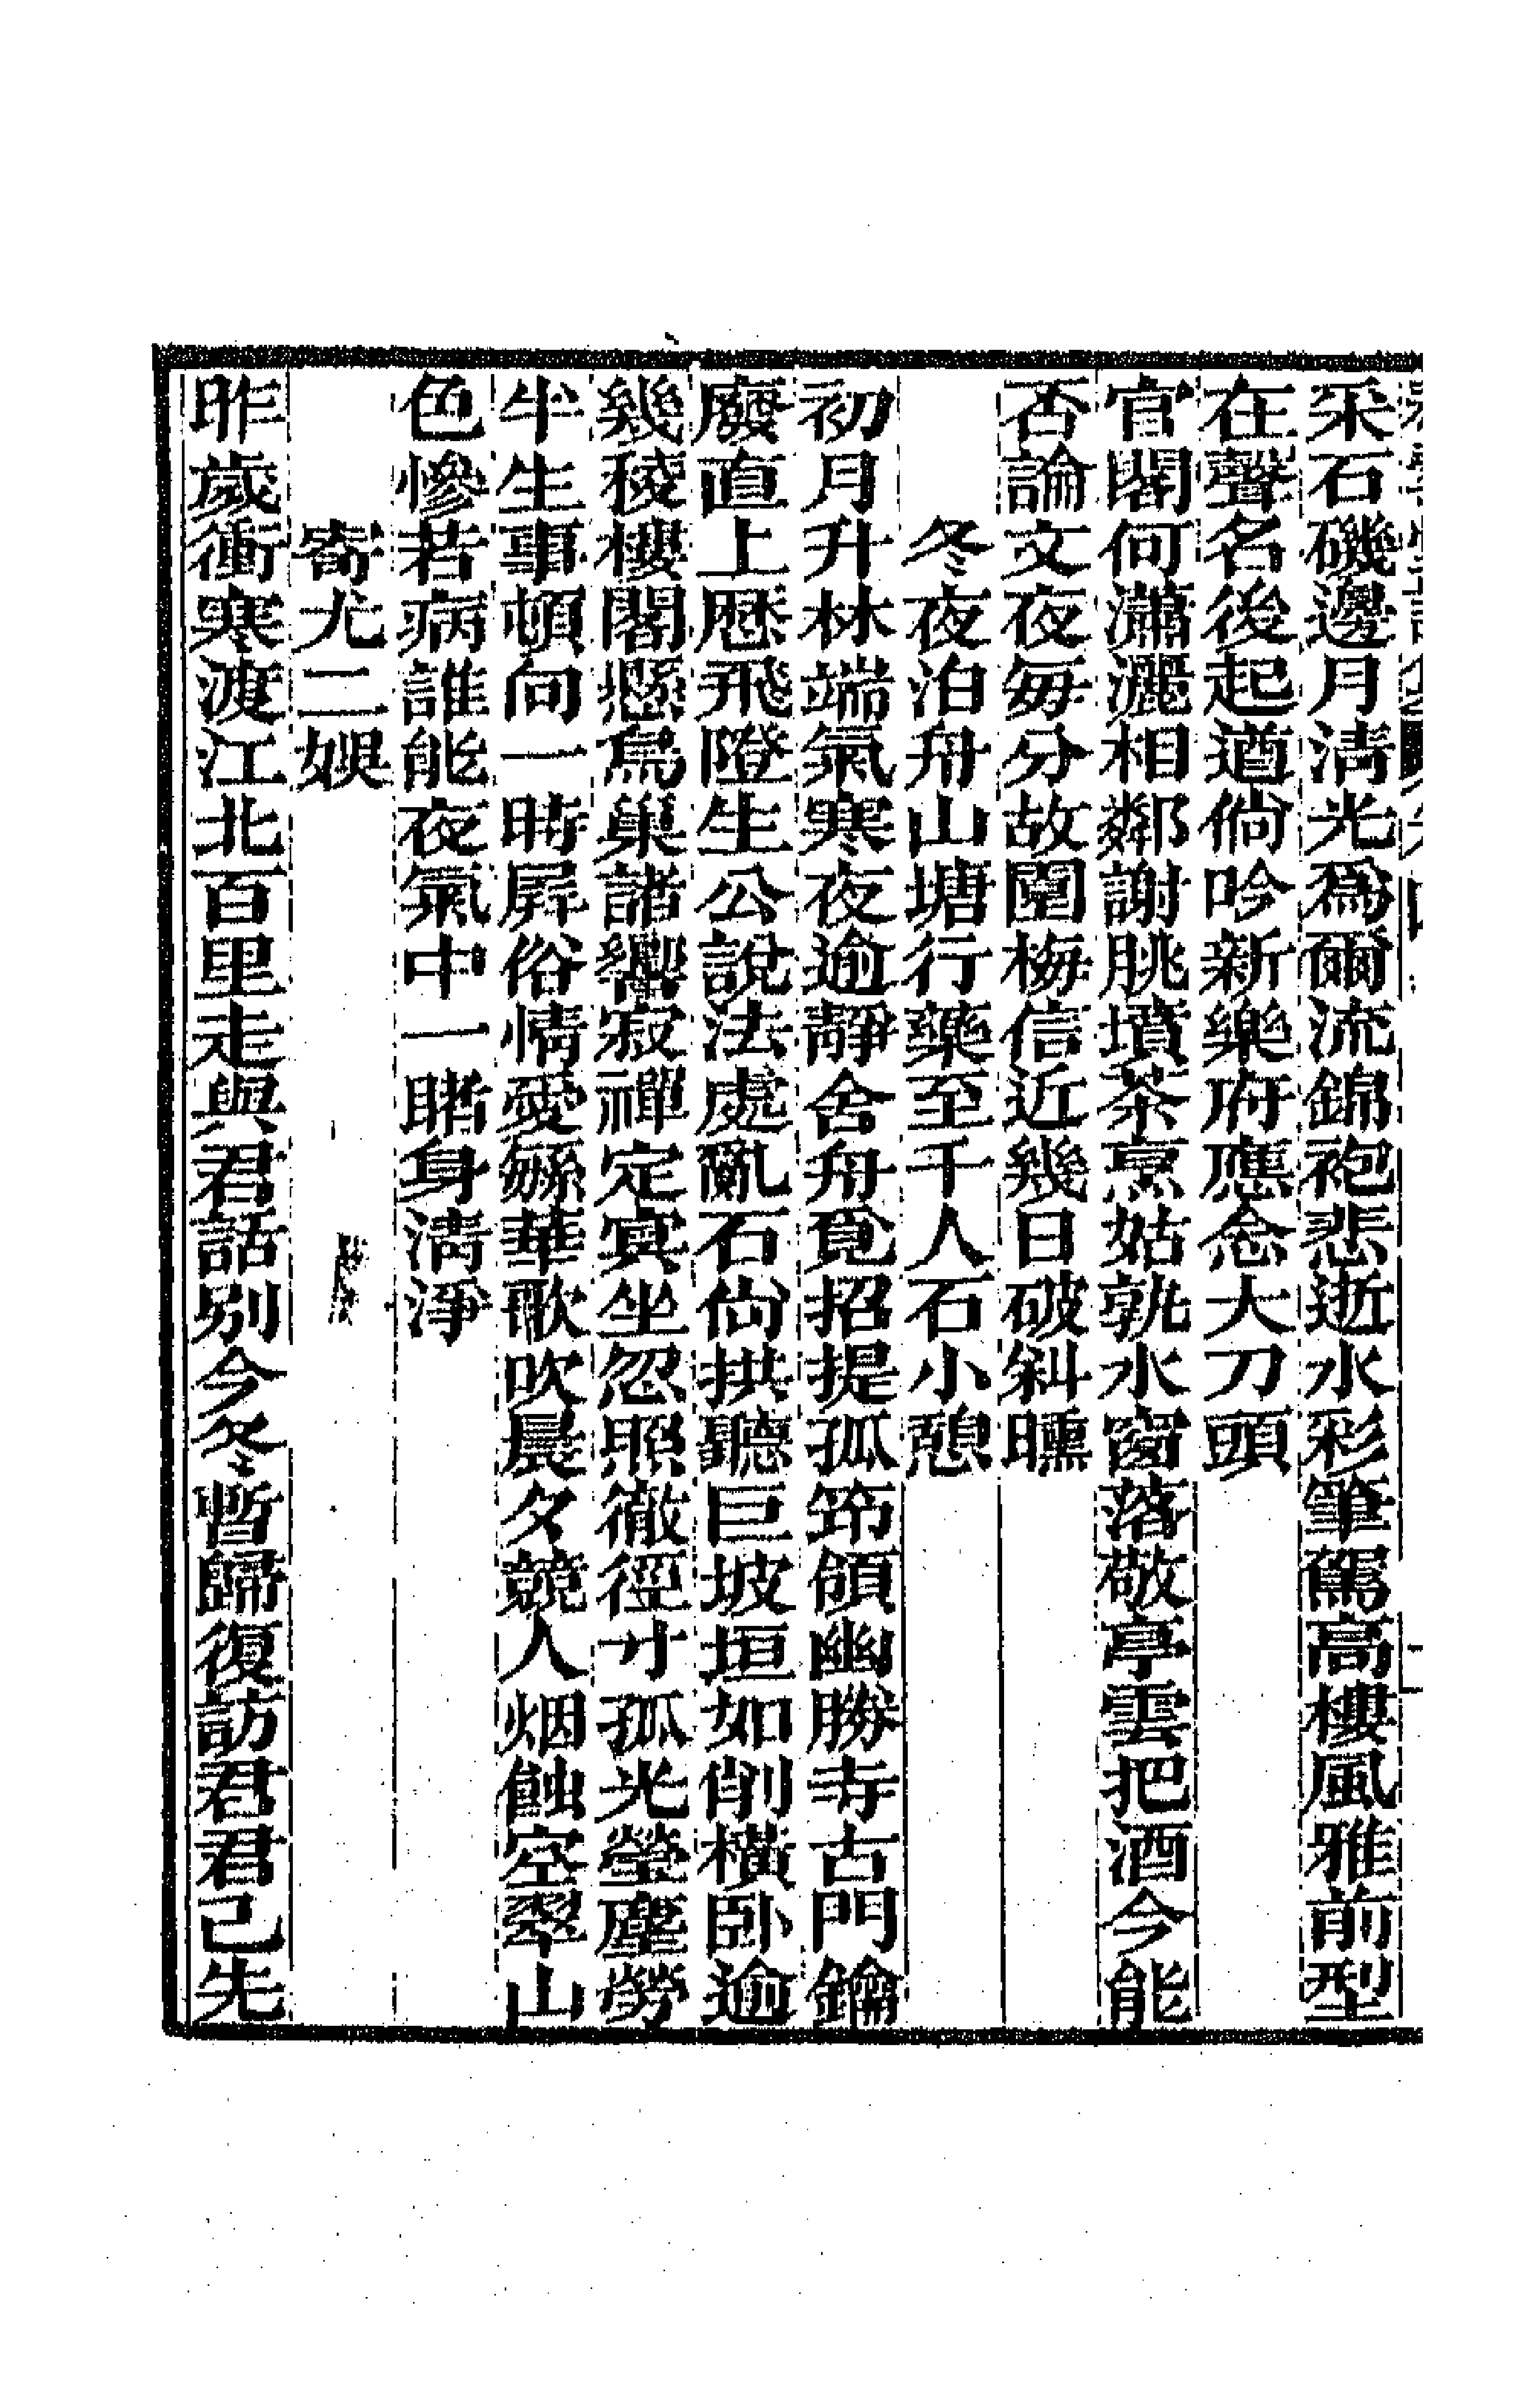 采石磯邊月清光爲爾流錦袍悲逝水彩筆駕高樓風雅前型
在聲名後起遒倘吟新樂府應念大刀頭
官閣何瀟灑相鄰謝朓墳茶烹姑孰水窗落敬亭雲把酒今能
否論文夜每分故園梅信近幾日破斜曛
冬夜泊舟山塘行藥至千人石小憩
初月升林端氣寒夜逾靜舍舟覓招提孤筇領幽勝寺古門鑰
廢直上歷飛隥生公說法處亂石尙拱聽巨坡垣如削橫卧逾
幾稜樓閣懸鳥巢諸響寂禪定冥坐忽照徹徑寸孤光瑩塵勞
半生事頓向一時屛俗情愛繇華歌吹晨夕競人烟蝕空翠山
色慘若病誰能夜氣中一睹身淸淨
寄尤二娛
昨歲衝寒渡江北百里走與君話別今冬暫歸復訪君君已先